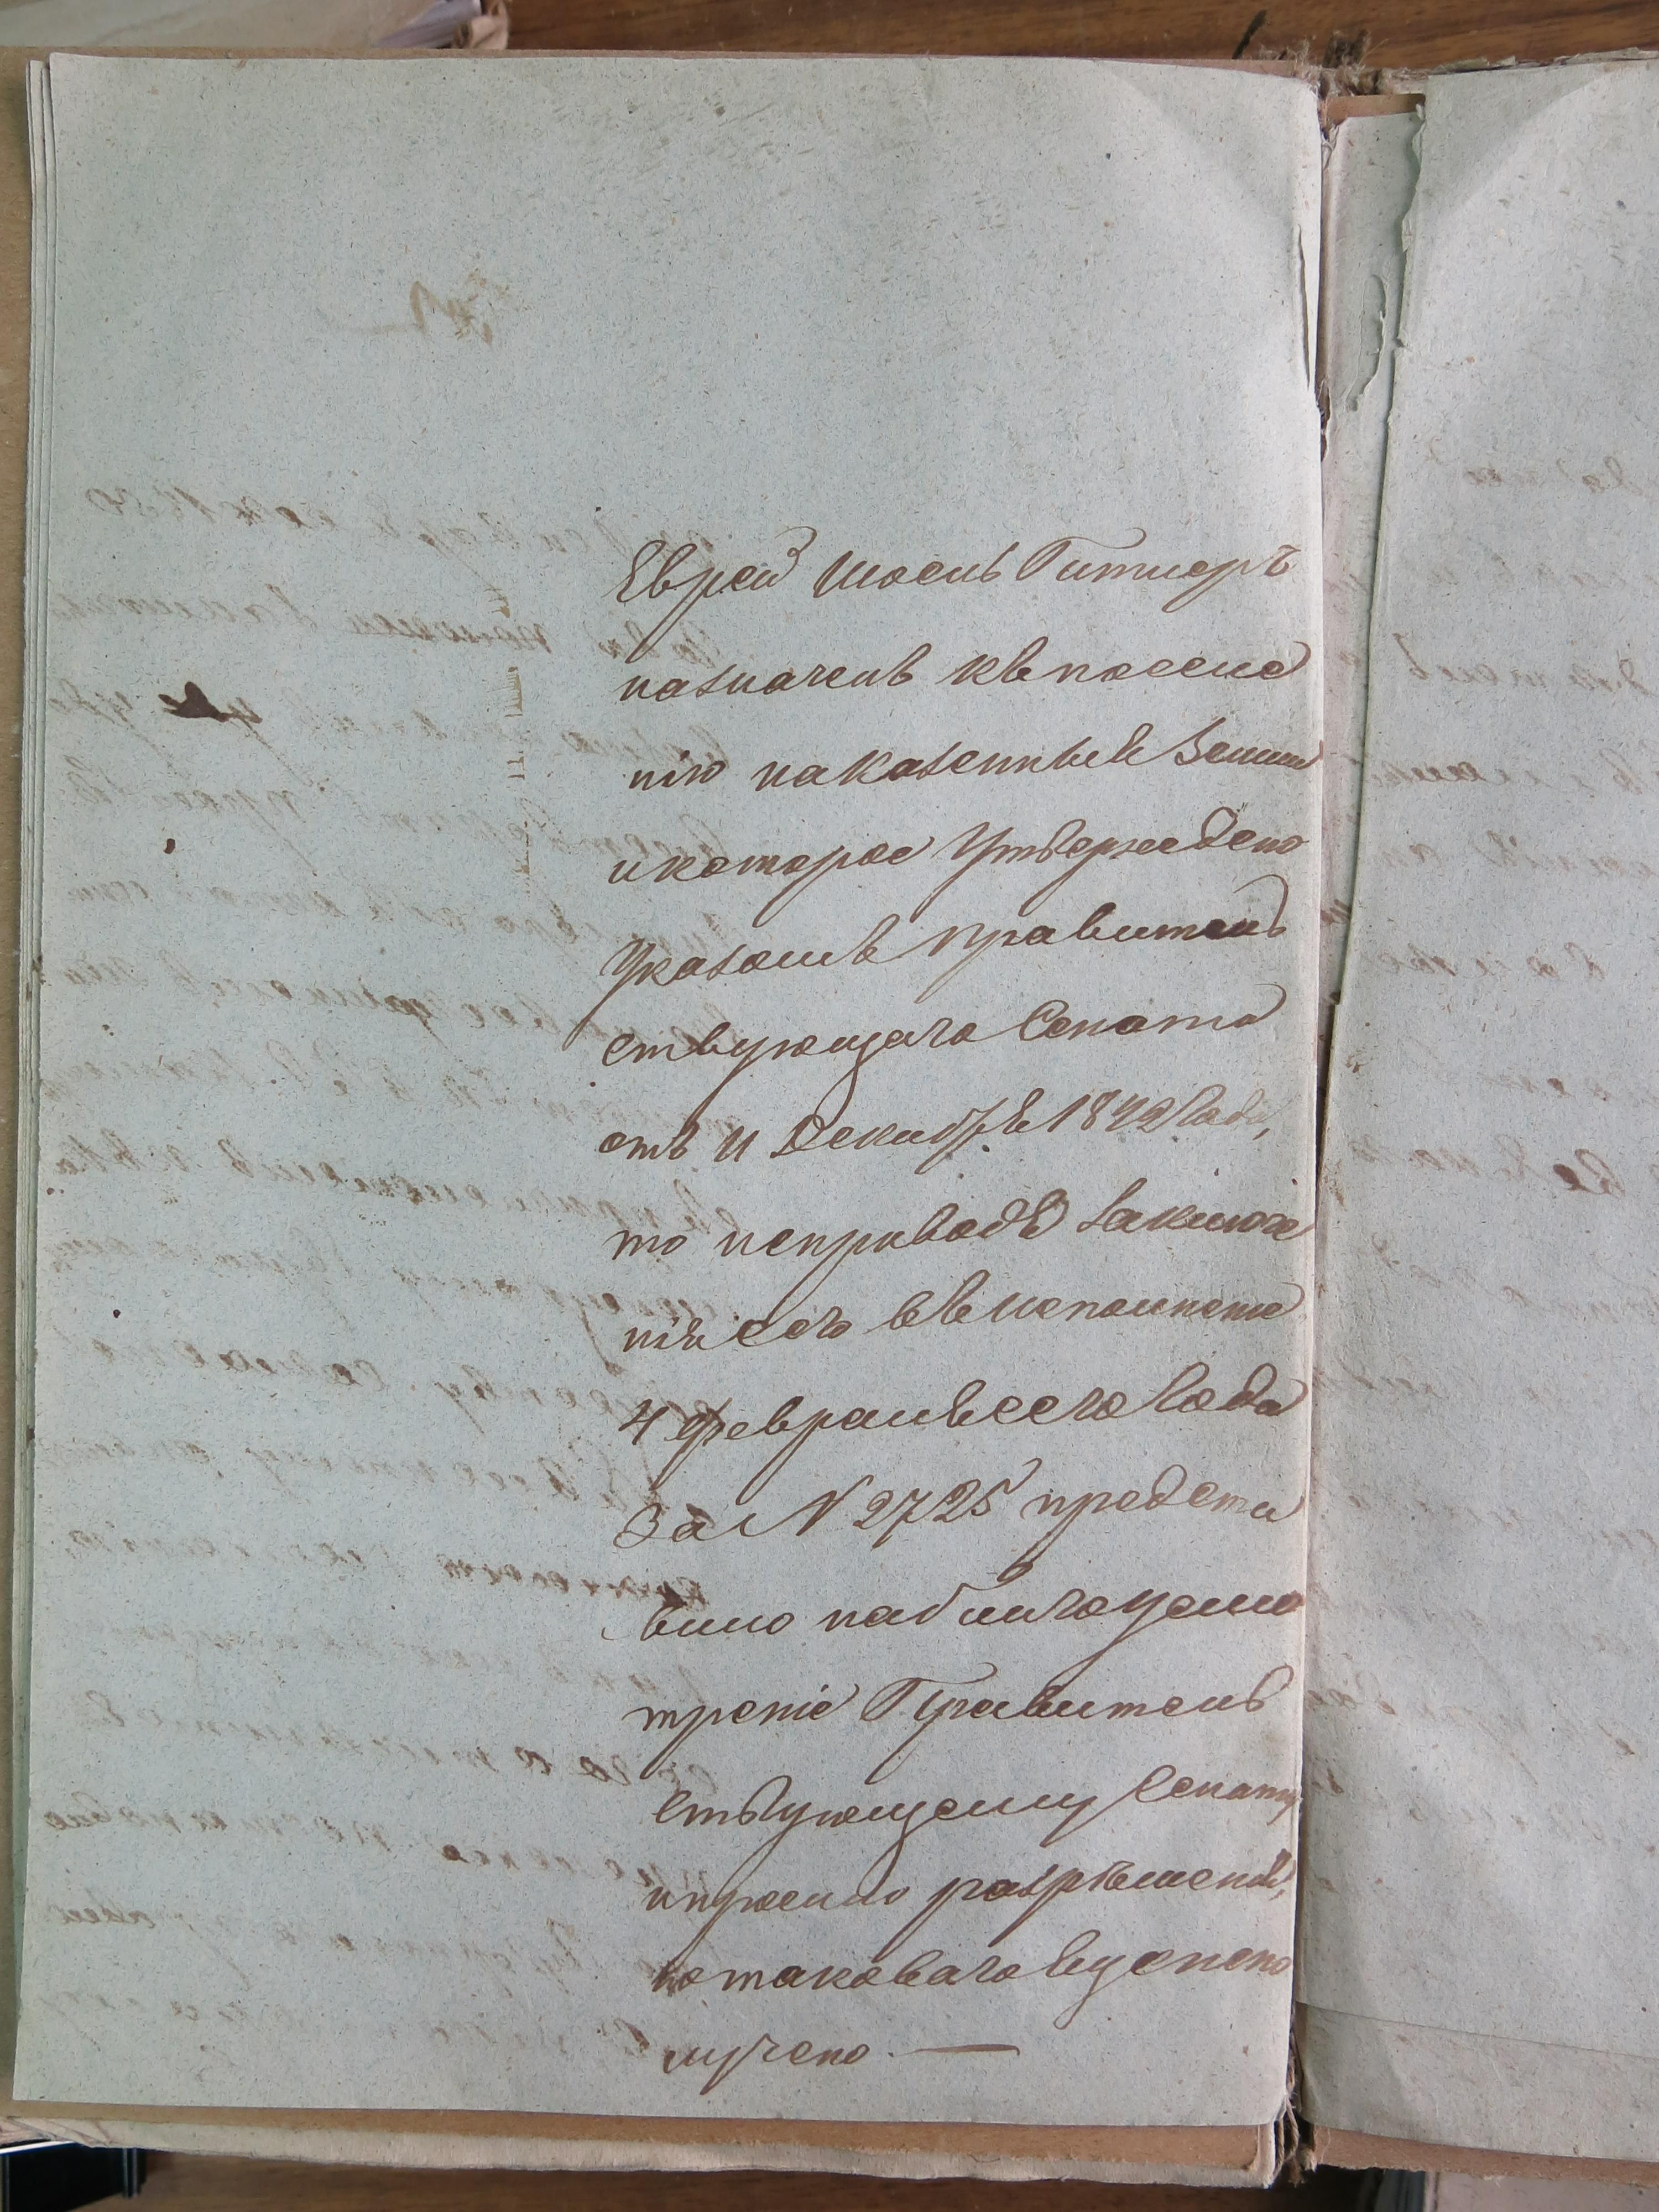 Еврей Иосель Гитлеръ
назначенъ къ поселе
нію на казенныхъ Земля
и которое Утверждено
Указомъ правитель
ствующаго Сената
отъ 11 Декабря 1842 Года,
но неприводъ заключе
нія его въ исполненіе
4 февраля сего Года
За N 2725 предста
влено на благоусмо
треніе Правитель
ствующему Сенату
и прошено разрѣшенія,
но таковаго еще непо
лучено. —